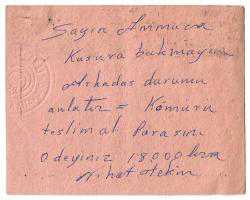 Sayın Ammuca
Kusura bakmayın
Arkadas durumu
anlatır = Kömürü
teslimat Parasını
Ödeyiniz 18000 lira
Nihat Tekin